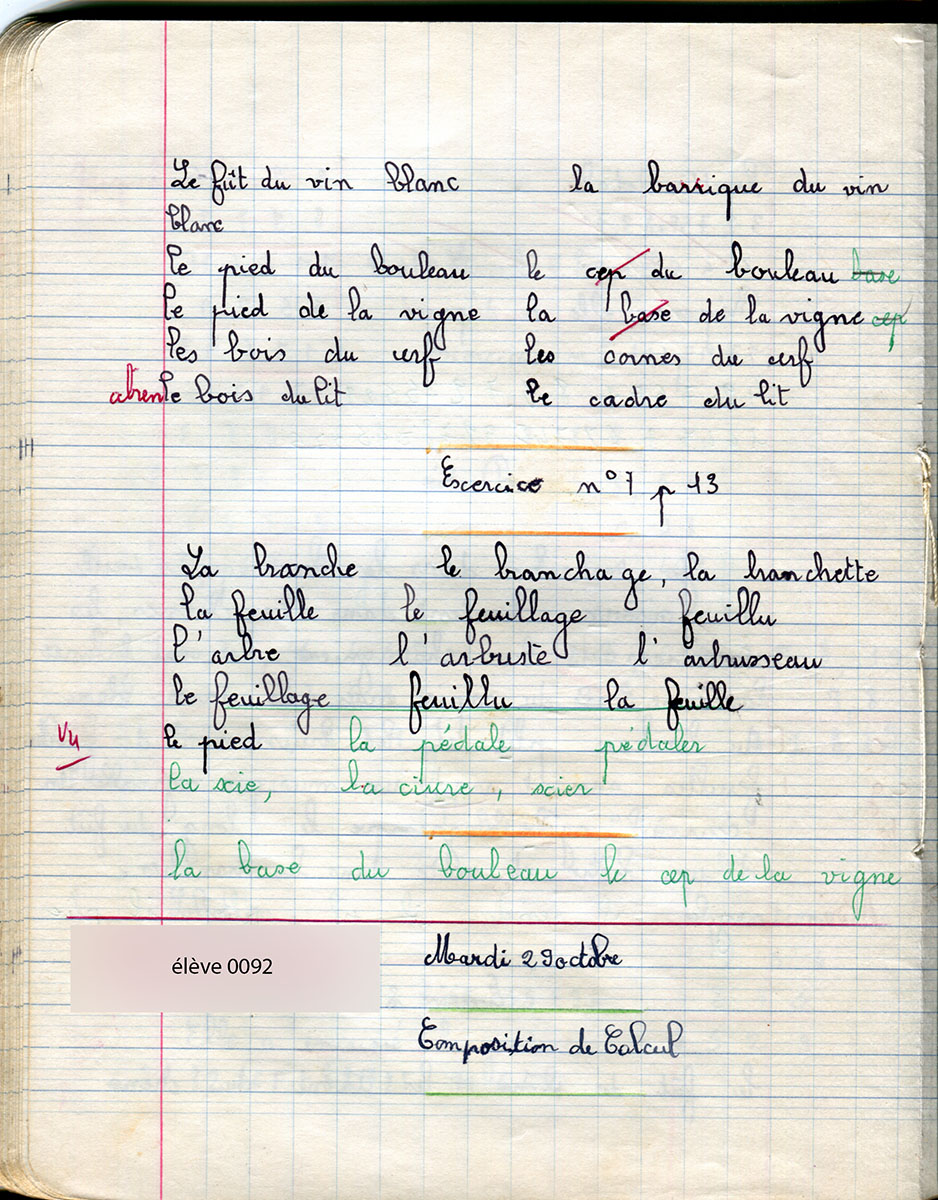 Le fût du vin blanc la barrique du vin
blanc
le pied du bouleau le cep du bouleau base
le pied de la vigne la base de la vigne cep
les bois du cerf les cornes du cerf
le bois du lit le cadre du lit
Excercice n° 7 p 13
La branche le branchage, la branchette
la feuille le feuillage feuillu
l'arbre l'arbuste l'arbrusseau
le feuillage feuillu la feuille
Vu le pied la pédale pédaler
la scie, la ciure, scier
la base du bouleau le cep de la vigne
élève 0092 Mardi 29 octobre
Composition de Calcul